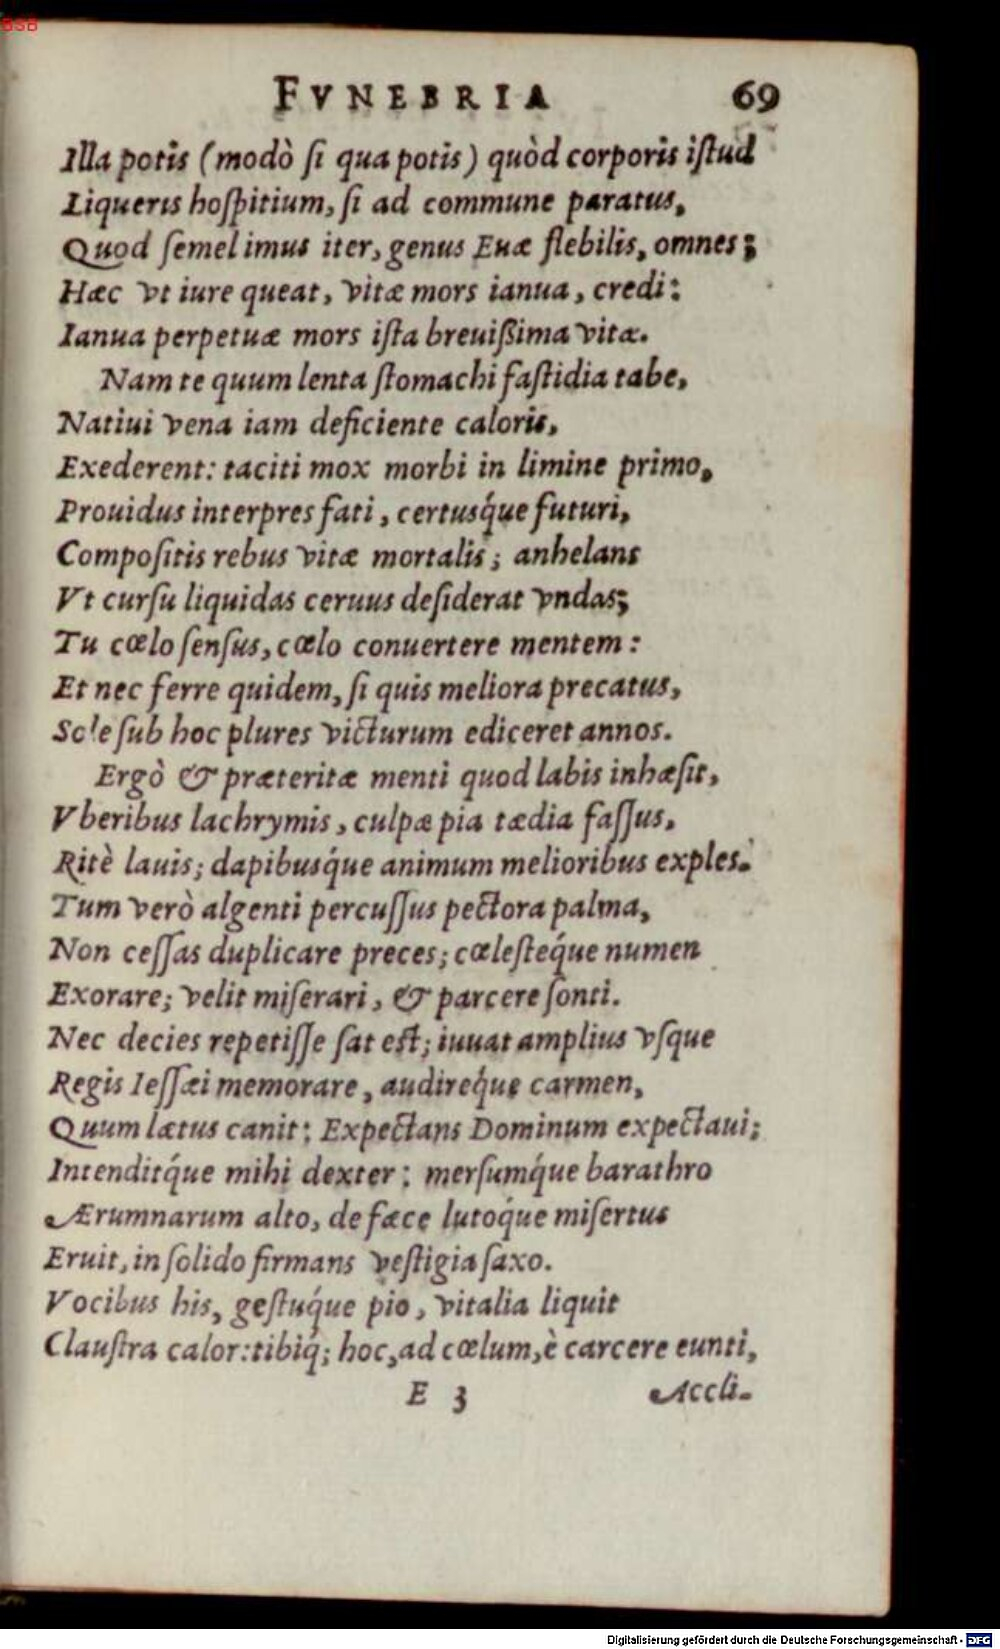 BSB
FVNEBRIA 69
Illa potis (modò ſi qua potis) quòd corporis iſtud
Liqueris hoſpitium, ſi ad commune paratus,
Quod ſemel imus iter, genus Euæ flebilis, omnes;
Hæc vt iure queat, vitæ mors ianua, credi:
Ianua perpetuæ mors iſta breuißima vitæ.
Nam te quum lenta ſtomachi faſtidia tabe,
Natiui vena iam deficiente caloris,
Exederent: taciti mox morbi in limine primo,
Prouidus interpres fati, certusq́ue futuri,
Compoſitis rebus vitæ mortalis; anhelans
Vt curſu liquidas ceruus deſiderat vndas;
Tu cœlo ſenſus, cœlo conuertere mentem:
Et nec ferre quidem, ſi quis meliora precatus,
Sole ſub hoc plures victurum ediceret annos.
Ergò & præteritæ menti quod labis inhæſit,
Vberibus lachrymis, culpæ pia tædia faſſus,
Ritè lauis; dapibusq́ue animum melioribus exples.
Tum verò algenti percuſſus pectora palma,
Non ceſſas duplicare preces; cœleſteq́ue numen
Exorare; velit miſerari, & parcere ſonti.
Nec decies repetiſſe ſat eſt; iuuat amplius vſque
Regis Ieſſæi memorare, audireq́ue carmen,
Quum lætus canit: Expectans Dominum expectaui;
Intenditq́ue mihi dexter: merſumq́ue barathro
Ærumnarum alto, de fæce lutoq́ue miſertus
Eruit, in ſolido firmans veſtigia ſaxo.
Vocibus his, geſtuq́ue pio, vitalia liquit
Clauſtra calor: tibiq́; hoc, ad cœlum, è carcere eunti,
E 3 Accli-
Digitalisierung gefördert durch die Deutsche Forschungsgemeinschaft - DFG